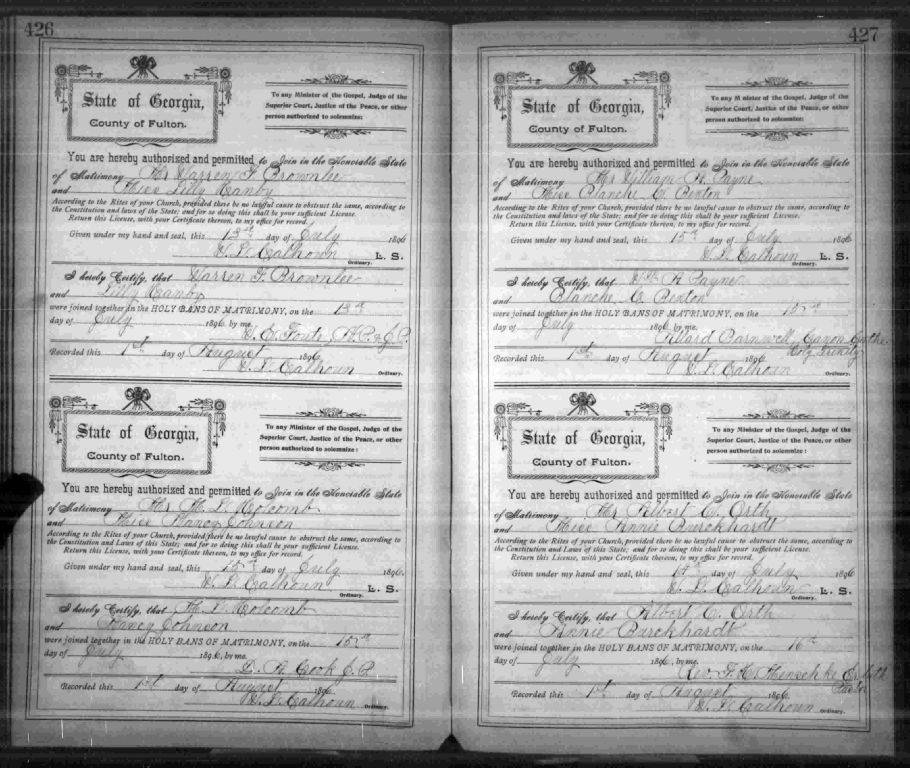 426
State of Georgia,
County of Fulton.
To any Minister of the Gospel, Judge of the
Superior Court, Justice of the Peace, or other
person authorized to solemnize:
You are hereby authorized and permitted to Join in the Honorable State
of Matrimony Mr Warren F. Brownlee
and Miss Lilly Canby
According to the Rites of your Church, provided there be no lawful cause to obstruct the same, according to
the Constitution and laws of this State; and for so doing this shall be your sufficient License.
Return this License, with your Certificate thereon, to my office for record.
Given under my hand and seal, this 13th day of July 1896
W. L. Calhoun L. S.
Ordinary.
I hereby Certify, that Warren F. Brownlee
and Lilly Canby
were joined together in the HOLY BANS OF MATRIMONY, on the 13th
day of July 1896, by me.
J.P.
Recorded this 1st day of August 1896
W. L. Calhoun Ordinary.
State of Georgia,
County of Fulton.
To any Minister of the Gospel, Judge of the
Superior Court, Justice of the Peace, or other
person authorized to solemnize:
You are hereby authorized and permitted to Join in the Honorable State
of Matrimony Mr H. L. Holcomb
and Miss Nancy Johnson
According to the Rites of your Church, provided there be no lawful cause to obstruct the same, according to
the Constitution and Laws of this State; and for so doing this shall be your sufficient License.
Return this License, with your Certificate thereon, to my office for record.
Given under my hand and seal, this 15th day of July 1896.
W. L. Calhoun L. S.
Ordinary.
I hereby Certify, that H. L. Holcomb
and Nancy Johnson
were joined together in the HOLY BANS OF MATRIMONY, on the 15th
day of July 1896, by me.
Cook J.P.
Recorded this 1st day of August 1896
W. L. Calhoun Ordinary.
427
State of Georgia,
County of Fulton.
To any Minister of the Gospel, Judge of the
Superior Court, Justice of the Peace, or other
person authorized to solemnize:
You are hereby authorized and permitted to Join in the Honorable State
of Matrimony Mr William A. Payne
and Miss Blanche E. Sexton
According to the Rites of your Church, provided there be no lawful cause to obstruct the same, according to
the Constitution and laws of this State; and for so doing this shall be your sufficient License.
Return this License, with your Certificate thereon, to my office for record.
Given under my hand and seal, this 15th day of July 1896
W. L. Calhoun L. S.
Ordinary.
I hereby Certify, that Wm A Payne
and Blanche E. Sexton
were joined together in the HOLY BANS OF MATRIMONY, on the 15th
day of July 1896, by me.
Barnwell,
Recorded this 1st day of August 1896 Holy Trinity
W. L. Calhoun Ordinary.
State of Georgia,
County of Fulton.
To any Minister of the Gospel, Judge of the
Superior Court, Justice of the Peace, or other
person authorized to solemnize:
You are hereby authorized and permitted to Join in the Honorable State
of Matrimony Mr Albert C. Orth
and Miss Annie Burckhardt
According to the Rites of your Church, provided there be no lawful cause to obstruct the same, according to
the Constitution and Laws of this State; and for so doing this shall be your sufficient License.
Return this License, with your Certificate thereon, to my office for record.
Given under my hand and seal, this 15th day of July 1896
W. L. Calhoun L. S.
Ordinary.
I hereby Certify, that Albert C. Orth
and Annie Burckhardt
were joined together in the HOLY BANS OF MATRIMONY, on the 16th
day of July 1896, by me.
Rev. Luth
Pastor
Recorded this 1st day of August 1896
W. L. Calhoun Ordinary.